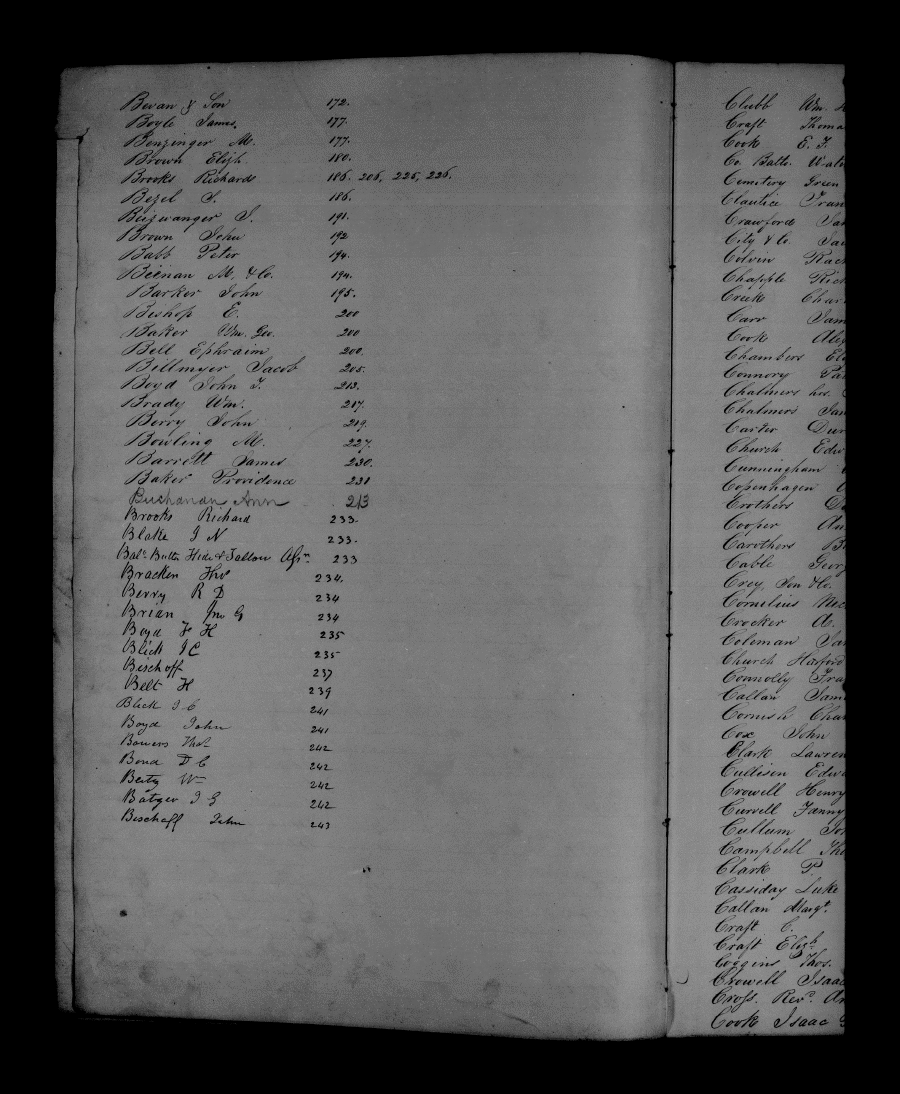 Bevan & Son 172.
Boyle James. 177.
Benzinger M. 177.
Brown Elizh. 180.
Brooks Richards 186. 206, 225, 226.
Bezel S. 186.
Beizwanger S. 191.
Brown John 192
Babb Peter 194.
Beenan M. & Co. 194.
Barker John 195.
Bishop E. 200
Baker Wm. Geo. 200
Bell Ephraim 200.
Billmyer Jacob 205.
Boyd John T. 213.
Brady Wm. 217.
Berry John 219.
Bowling M. 227.
Barrett James 230.
Baker Providence 231
Buchanan Ann 213
Brooks Richard 233.
Blake J N 233.
Balt. Butte Hide & Tallow Assn. 233
Bracken 234.
Berry R D 234
Brian Jno G 234
Boyd F H 235
Blick J C 235
Bischoff 237
Belt H 239
Blick J C 241
Boyd John 241
Bowers Thos 242
Bond D C 242
Beity Wm 242
Batzer J G 242
Bischoff John 243
Clubb Wm.
Craft Thoma
Cook E. F.
Co. Balto. Wate
Cemetery Green
Clautice Fran
Crawford
City & Co.
Colvin Rach
Chapple Rich
Creek Char
Carr Jam
Cook Alex
Chambers
Connory Pa
Chalmers hrs.
Chalmers
Carter Dur
Church Edw
Cunningham
Copenhagen
Crothers
Cooper
Carothers
Cable Geor
Crey, Son & Co.
Cornelius
Crocker A.
Coleman
Church Harford
Connolly Fra
Callan Jam
Cornish Char
Cox John
Clark Lawren
Cullison Edw
Crowell Henry
Curvell Fanny
Cullum
Campbell Tho
Clark P.
Cassiday Luke
Callan Margt.
Craft C.
Craft Elizh.
Coggins Thos.
Crowell Isaac
Cross. Revd.
Cook Isaac